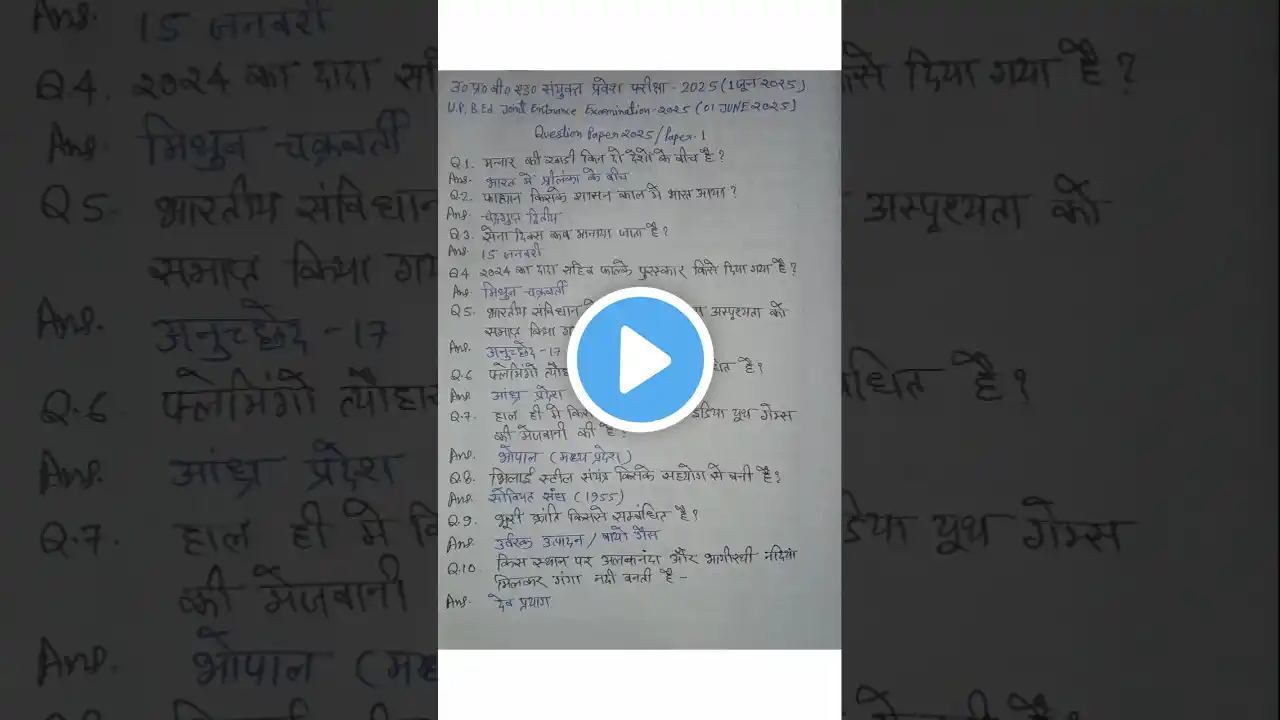 उ०प्र० बी० एड० संयुक्त प्रवेश परीक्षा - 2025 (1 जून 2025)
U.P. B.Ed. Joint Entrance Examination-2025 (01 JUNE 2025)
Question Paper 2025/Paper-1
Q1. मन्नार की खाडी किन दो देशो के बीच है?
Ans. भारत में श्रीलंका के बीच
Q2. फाह्यान किसके शासन काल मे भारत आया?
Ans. चंद्रगुप्त द्वितीय
Q3. सेना दिवस कब मानाया जाता है?
Ans. 15 जनवरी
Q4 2024 का दादा साहेब फाल्के पुरस्कार किसे दिया गया है?
Ans. मिथुन चक्रवर्ती
Q5. भारतीय संविधान अस्पृश्यता को
समाप्त किया
Ans. अनुच्छेद -17
Q.6 फ्लेमिंगो है?
Ans आंध्र प्रदेश
Q.7. हाल ही मे इंडिया यूथ गेम्स
की मेजबानी की है?
Ans. भोपाल (मध्य प्रदेश)
Q8. भिलाई स्टील संयंत्र किसके सहयोग से बनी है?
Ans. सोवियत संघ (1955)
Q.9. भूरी क्रांति किससे सम्बंधित है?
Ans. उर्वरक उत्पादन / बायो गैस
Q.10. किस स्थान पर अलकानंदा और भागीरथी नदिया
मिलकर गंगा नदी बनती है -
Ans. देव प्रयाग